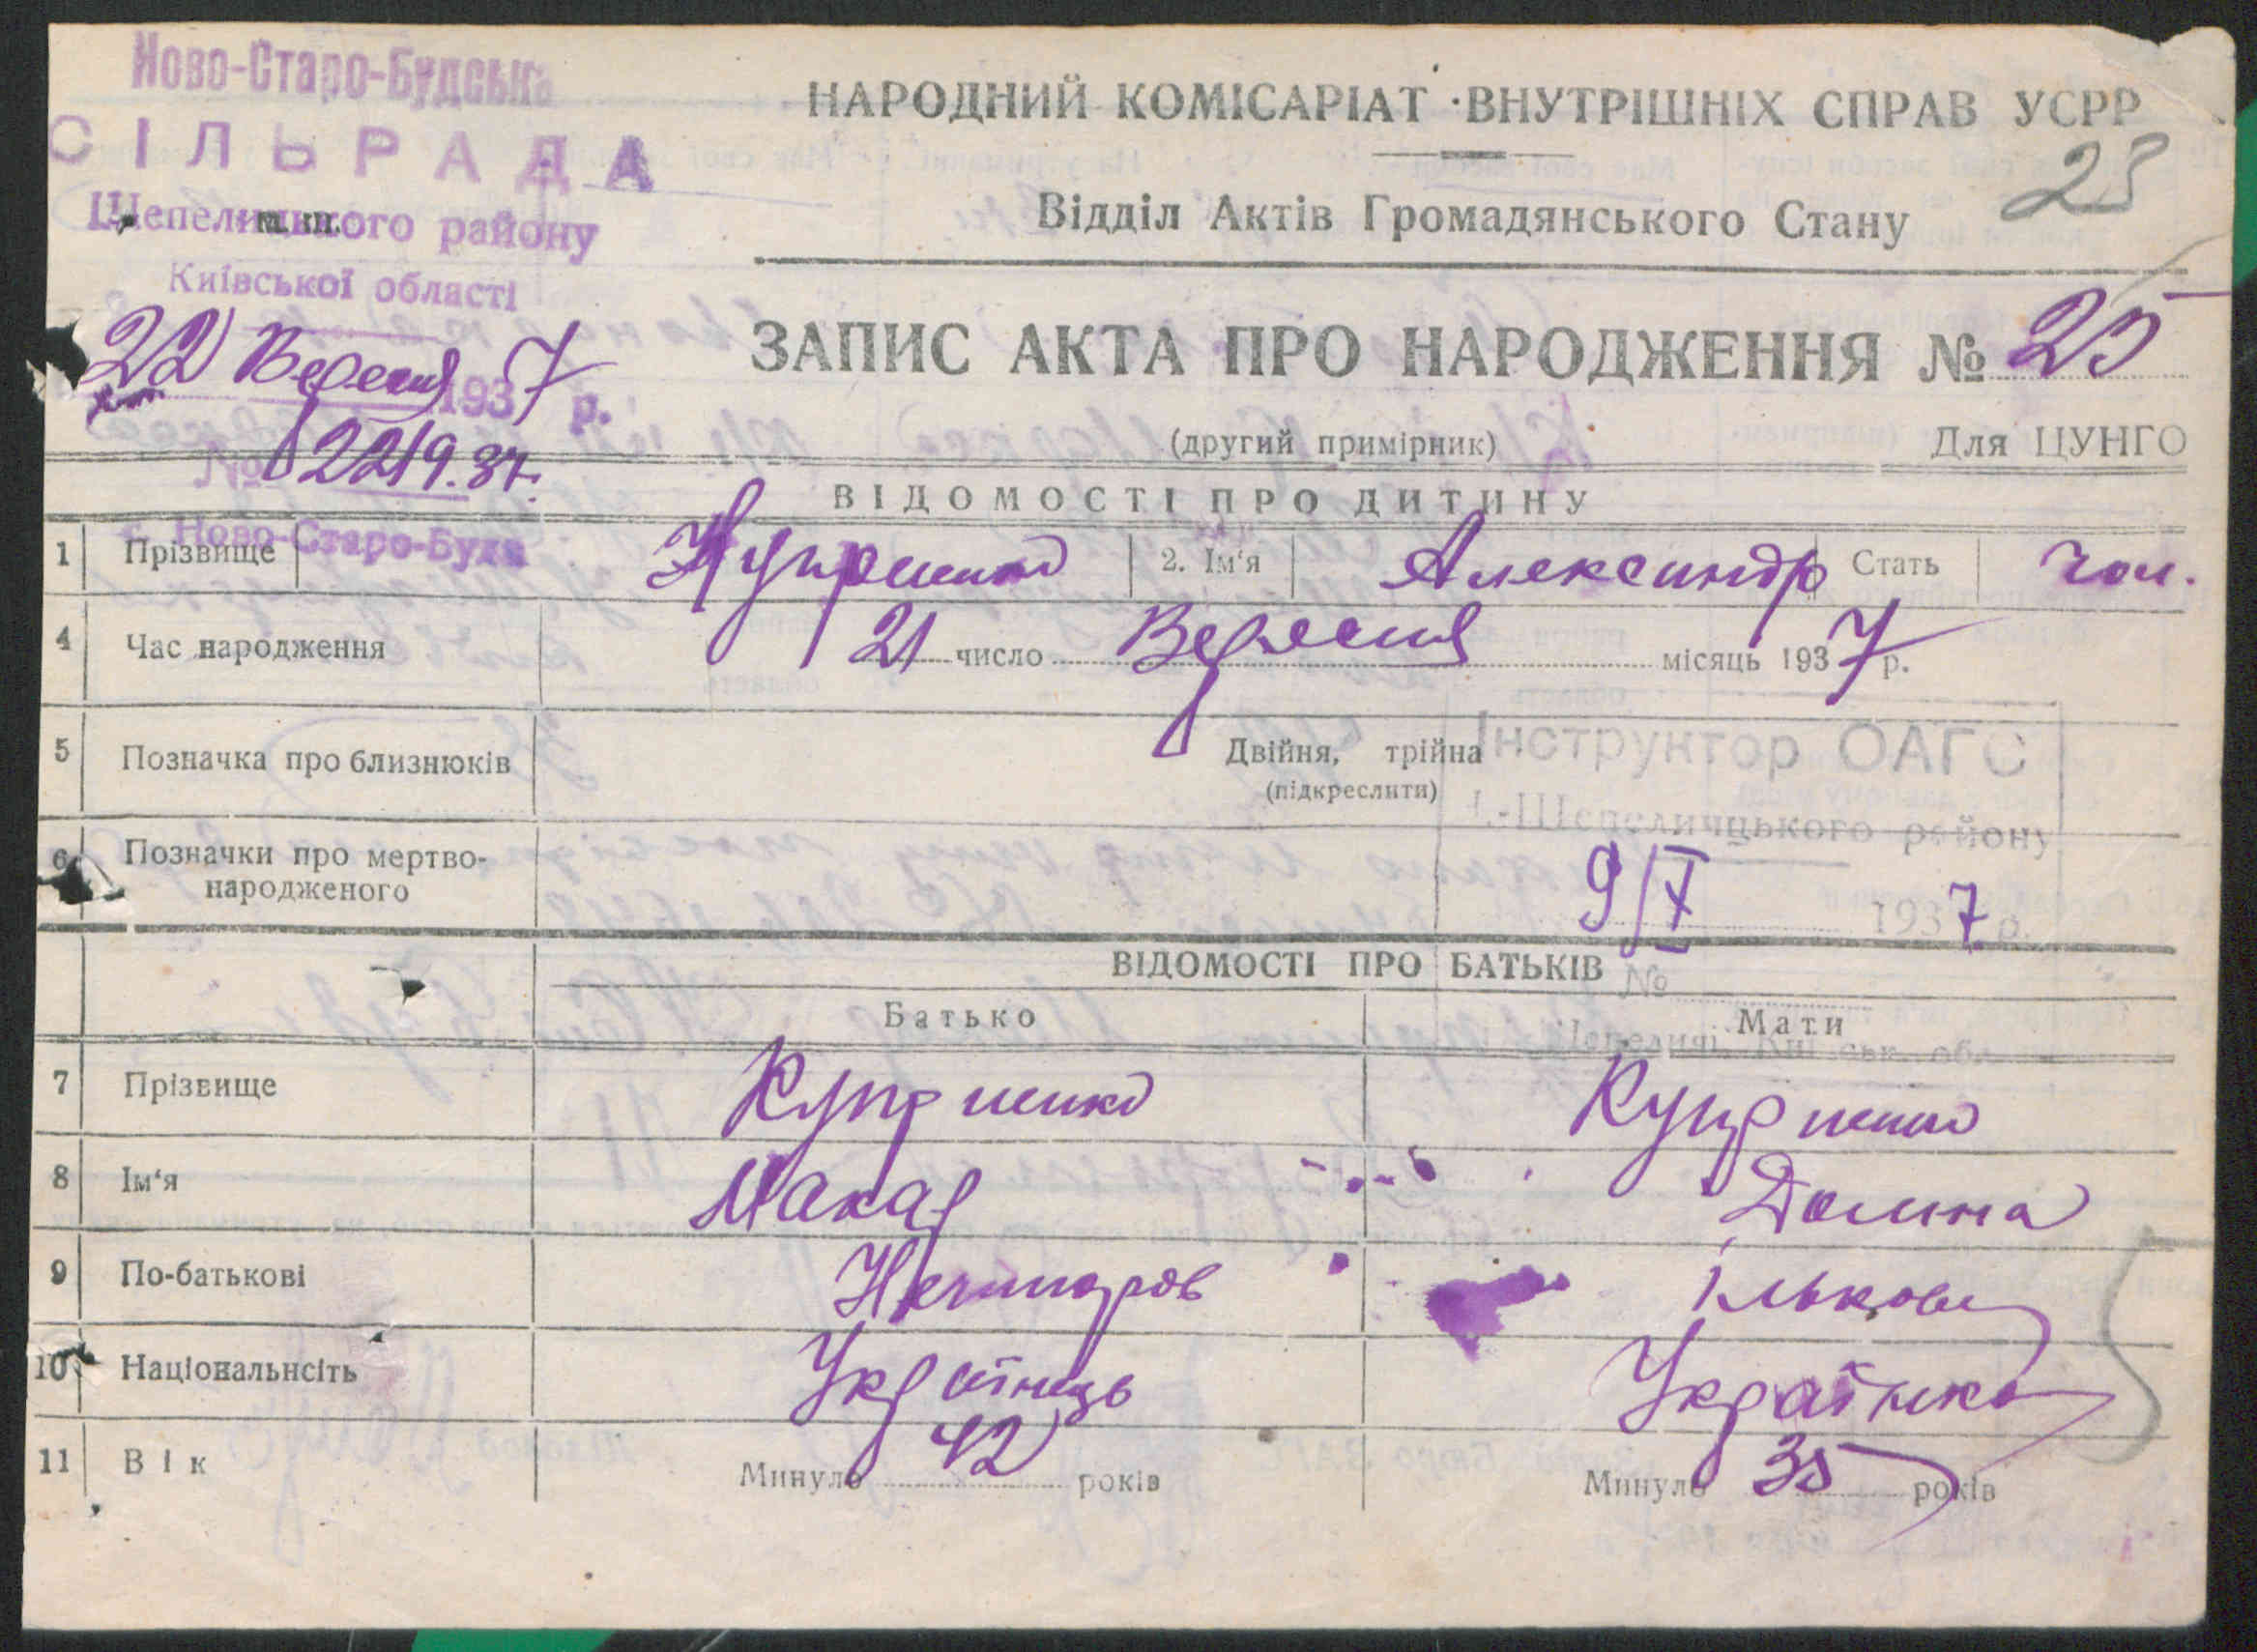 Ново-Старо-Будська
СІЛЬРАДА
Шепелицького району
Київської області
22 Вересня 1937 р.
№ 22/9.37.
с. Ново-Старо-Буда
НАРОДНИЙ КОМІСАРІАТ ВНУТРІШНІХ СПРАВ УСРР
23
Відділ Актів Громадянського Стану
ЗАПИС АКТА ПРО НАРОДЖЕННЯ № 25
(другий примірник) Для ЦУНГО
ВІДОМОСТІ ПРО ДИТИНУ
1 Прізвище Куприенко 2. Ім'я Александр Стать чол.
4 Час народження 21 число Вересня місяць 1937 р.
5 Позначка про близнюків Двійня, трійна
(підкреслити)
Інструктор ОАГС
-Шепеличцького району
6 Позначки про мертво-
народженого
9/X 1937 р.
№
ВІДОМОСТІ ПРО БАТЬКІВ
Батько Мати
7 Прізвище Куприенко Куприенко
8 Ім'я Макар Домна
9 По-батькові Нечипоров Ількова
10 Національнсіть Українець Українка
11 Вік Минуло 42 років Минуло 35 років